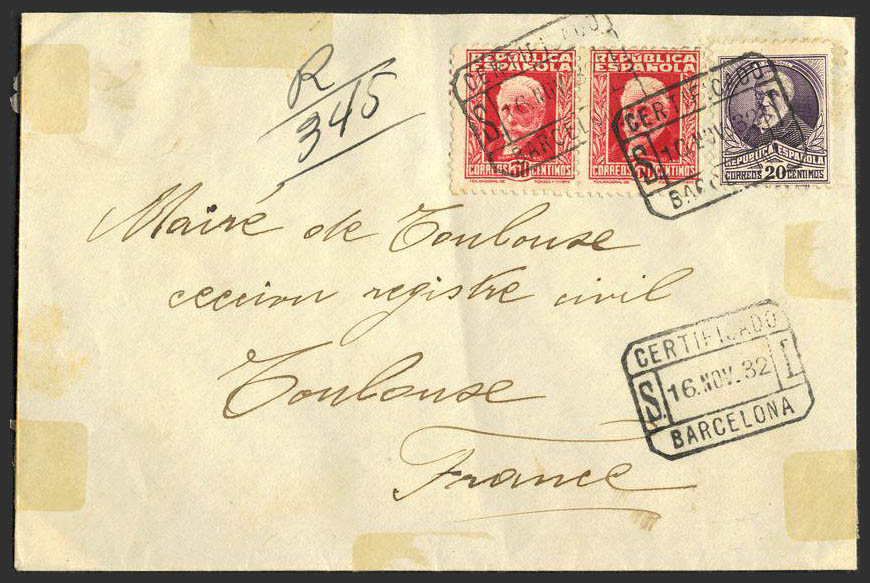 R
345
REPÚBLICA
ESPAÑOLA
CORREOS CENTIMOS
REPÚBLICA
ESPAÑOLA
CORREOS CENTIMOS
REPUBLICA ESPAÑOLA
CORREOS 20 CENTIMOS
CERTIFICADO
S 16 NOV
BARCEL
CERTIFICADO
S 16 NOV. 32
BARCE
Mairé de Toulouse
ceccion registre civil
Toulouse
France
CERTIFICADO
S. 16.NOV.32 1.
BARCELONA